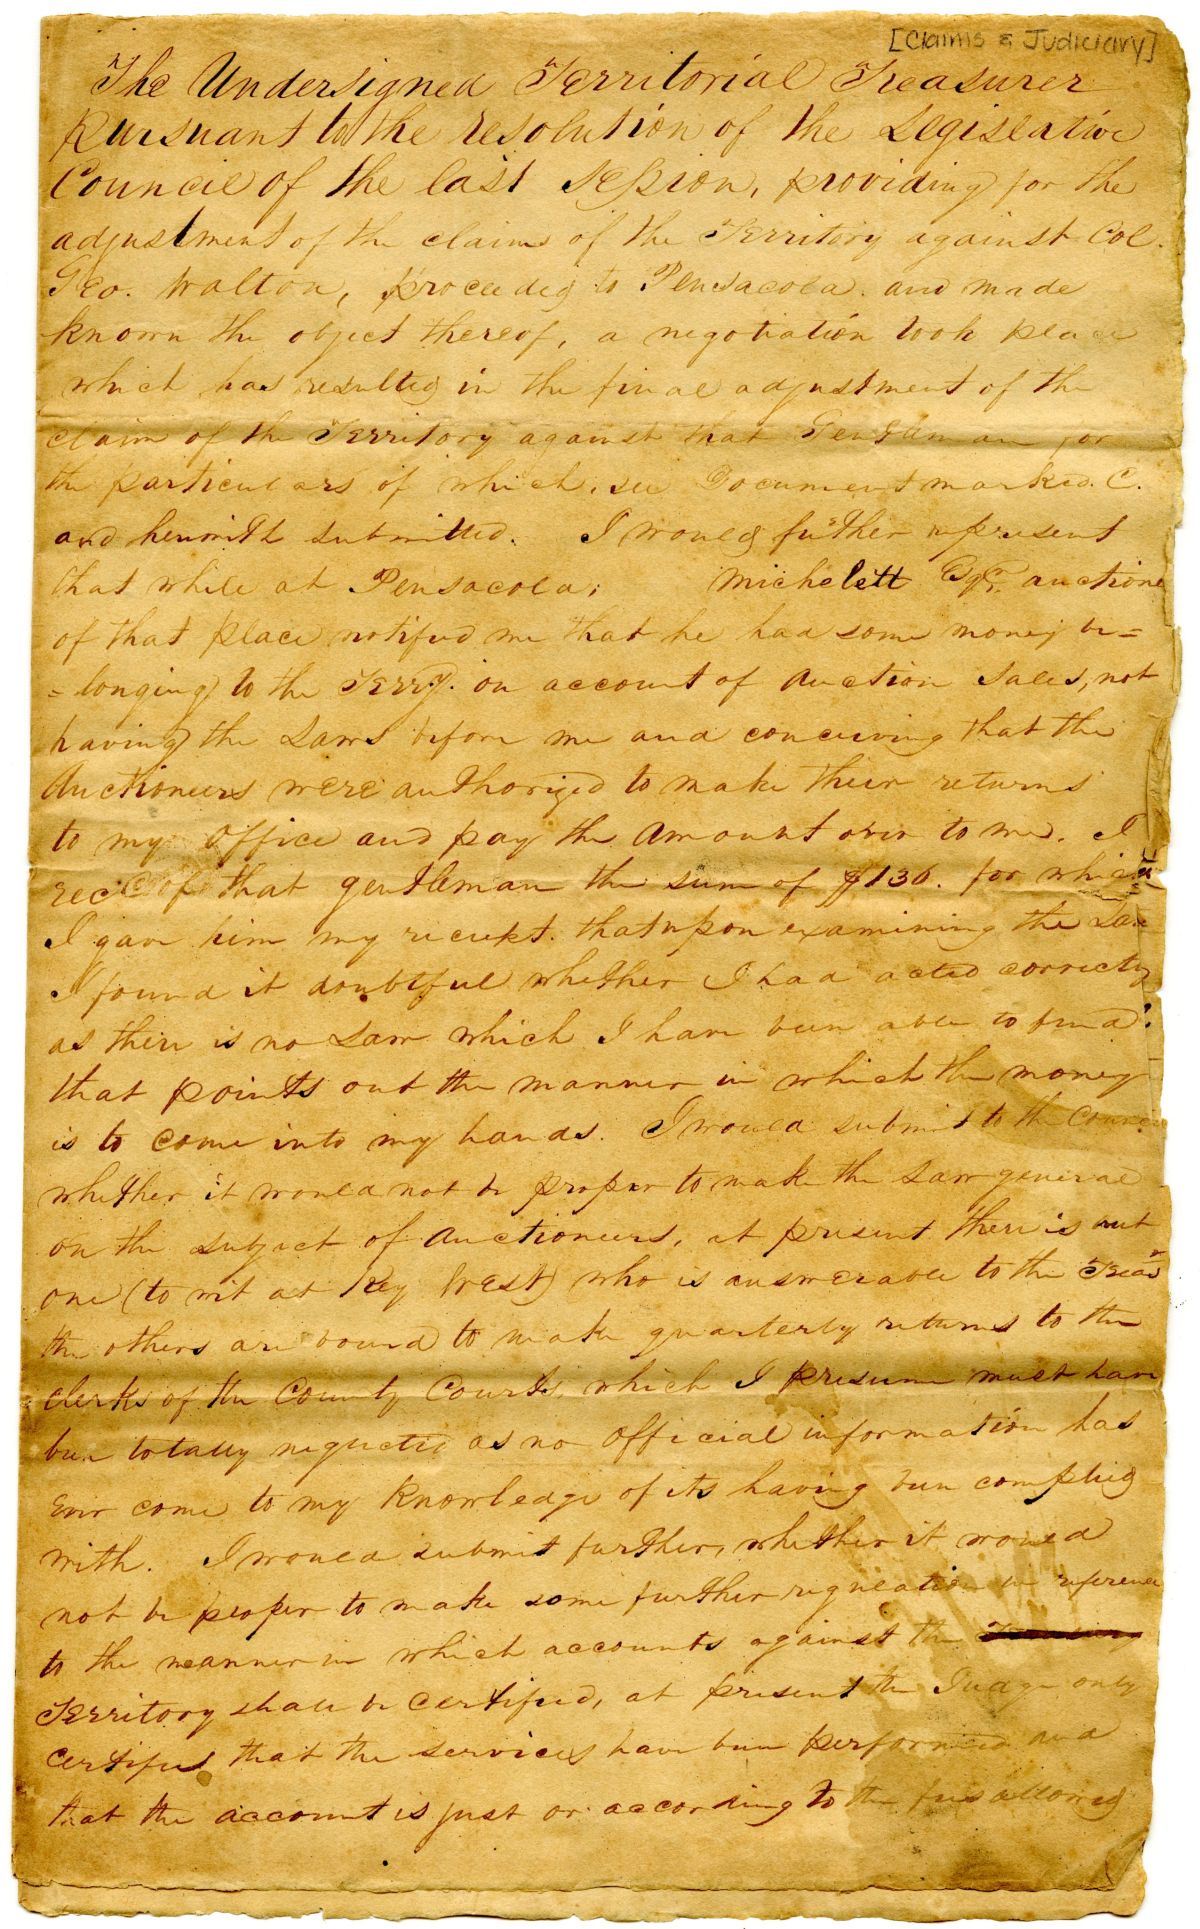 [Claims & Judiciary]
The Undersigned Territorial Treasurer
pursuant to the resolution of the Legislative
Council of the last Session, providing for the
adjustment of the claims of the Territory against Col.
Geo. Walton, proceeded to Pensacola and made
known the object thereof, a negotiation took place
which has resulted in the final adjustment of the
claim of the Territory against that Gentleman for
the particulars of which, see Document marked C.
and herewith submitted. I would further represent
that while at Pensacola, Michelett Esqr. auctione
of that place notified me that he had some money be=
=longing to the Terry. on account of Auction Sales, not
having the Laws before me and conceiving that the
Auctioneers were authorized to make their returns
to my office and pay the Amount over to me. I
recd of that gentleman the sum of $136. for which
I gave him my reciept. that upon examining the Law
I found it doubtful whether I had acted correctly
as there is no Law which I have been able to find
that points out the manner in which the money
is to come into my hands. I would submit to the Council
whether it would not be proper to make the Law general
on the subject of Auctioneers, at present there is but
one (to wit at Key West) who is answerable to the Treasr
the others are bound to make quarterly returns to the
Clerks of the County Courts, which I presume must have
been totally neglected as no official information has
ever come to my knowledge of its having been complied
with. I would submit further, whether it would
not be proper to make some further regulation in reference
to the manner in which accounts against the
Territory shall be certified, at present the Judge only
certifies that the services have been performed and
that the account is just or according to the fees allowed